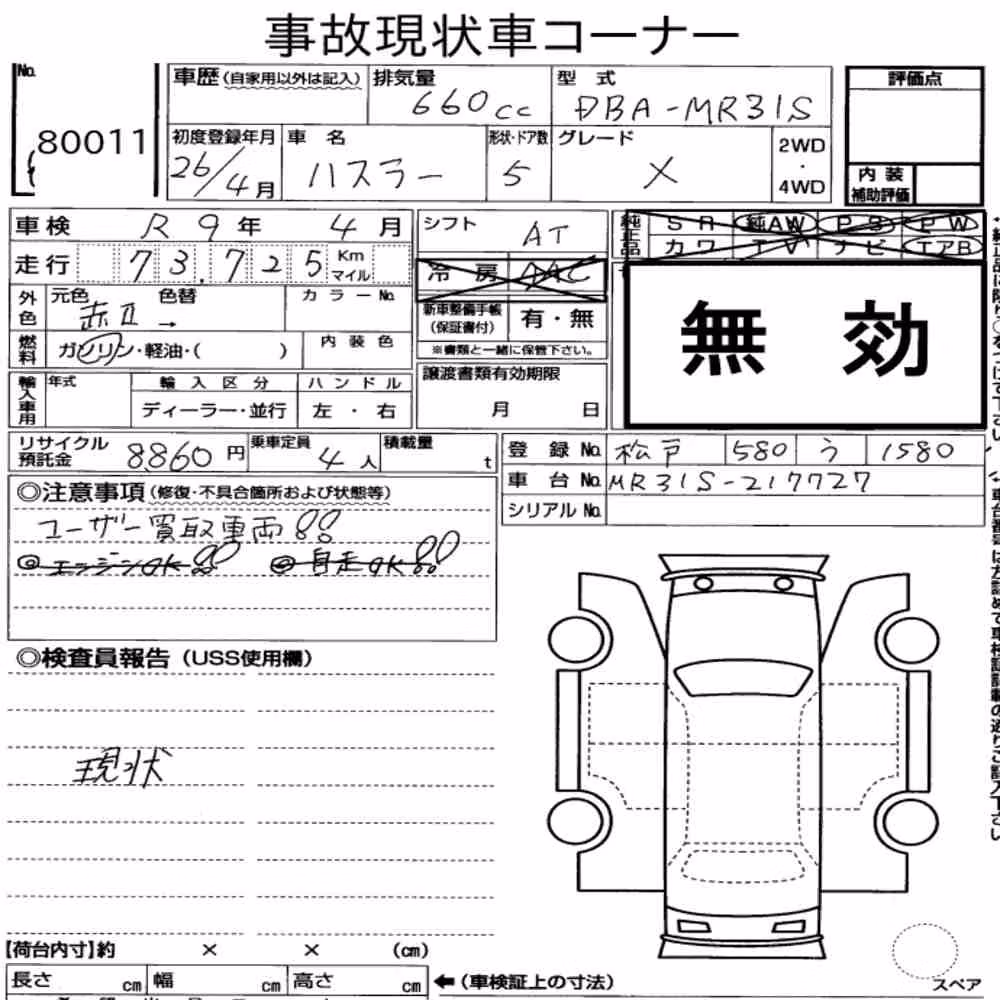 事故現状車コーナー
No. 80011
車歴(自家用以外は記入) 排気量 660cc 型式 DBA-MR31S 評価点
初度登録年月 26/4月 車名 ハスラー 形状・ドア数 5 グレード X 2WD・4WD
内装補助評価
車検 R9年 4月 シフト AT 純正品 SR 純AW PS PW
カワ TV ナビ エアB
走行 73,725 Km マイル 冷房 AAC
外色 元色 赤II 色替 → カラーNo. 新車整備手帳(保証書付) 有・無
※書類と一緒に保管下さい。
無効
燃料 ガソリン・軽油・( ) 内装色
譲渡書類有効期限 月 日
輸入車用 年式 輸入区分 ハンドル
ディーラー・並行 左・右
リサイクル預託金 8860円 乗車定員 4人 積載量 t
登録No. 松戸 580 う 1580
車台No. MR31S-217727
シリアルNo.
◎注意事項(修復・不具合箇所および状態等)
ユーザー買取車両!!
◎エンジンOK!! ◎自走OK!!
◎検査員報告(USS使用欄)
現状
【荷台内寸】約 × × (cm)
長さ cm 幅 cm 高さ cm ←(車検証上の寸法)
スペア